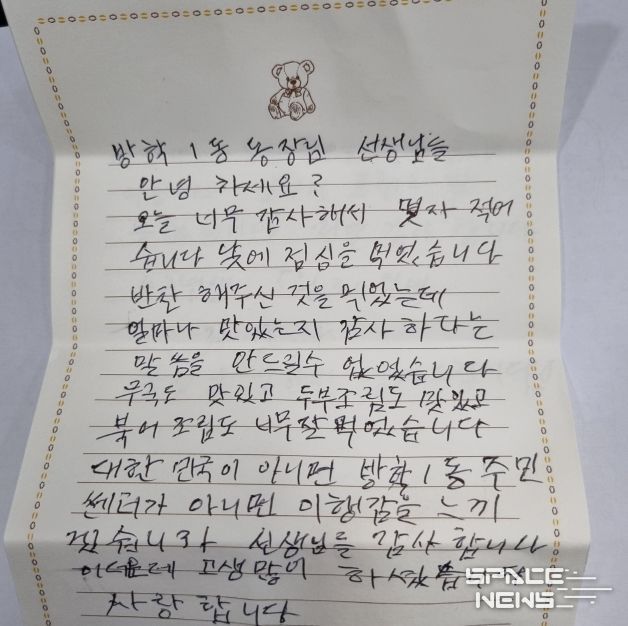 방학 1동 동장님 선생님들
안녕 하세요?
오늘 너무 감사해서 몇자 적어
습니다 낮에 점심을 먹었습니다
반찬 해주신 것을 먹었는데
얼마나 맛있는지 감사 하다는
말씀을 안드릴수 없었습니다
무국도 맛있고 두부조림도 맛있고
북어 조림도 너무잘 먹었습니다
대한 민국이 아니면 방학 1동 주민
쎈터가 아니면 이행감을 느끼
겠습니까 선생님들 감사 합니다
더운데 고생많이 하셨습
사랑 합니다
SPACE
NEWS